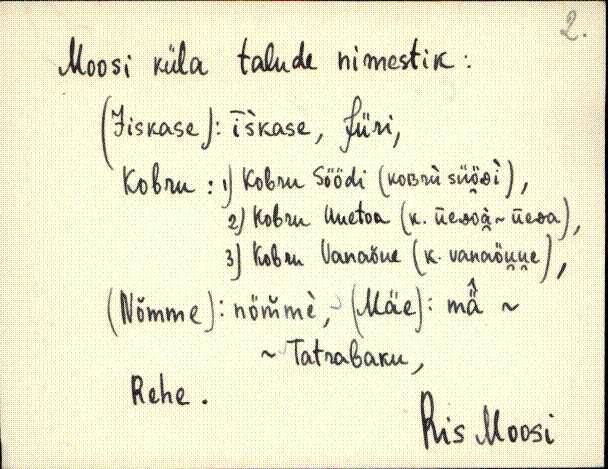 2.
Moosi küla talude nimestik:
(Jiskase): īškase, Jüri,
Kobru: 1) Kobru Söödi (
2) Kobru Uuetoa (k.
3) Kobru Vanaõue (k. vanaõu̯u̯e),
(Nõmme): nõm̆mè, (Mäe): mä̂ ~
~ Tatrabaku,
Rehe.
Ris Moosi